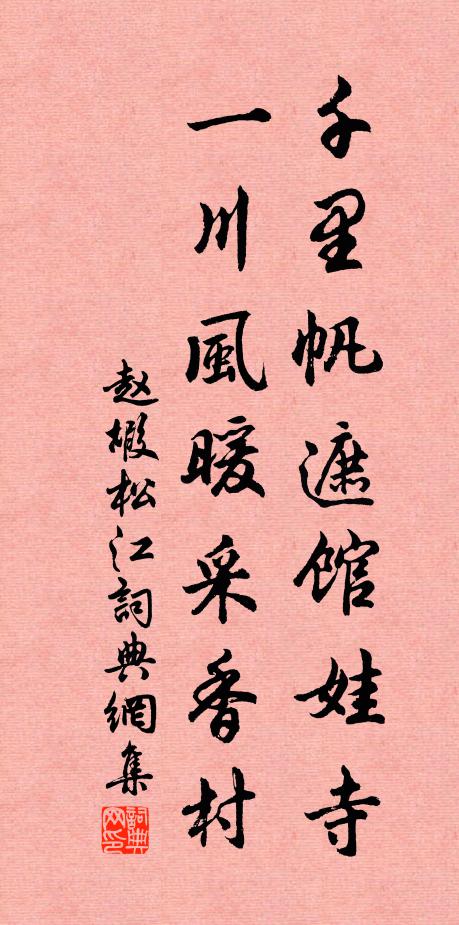 千里帆遮館娃寺
一川風暖采香村
赵嘏松江詞典網集
詞典网印